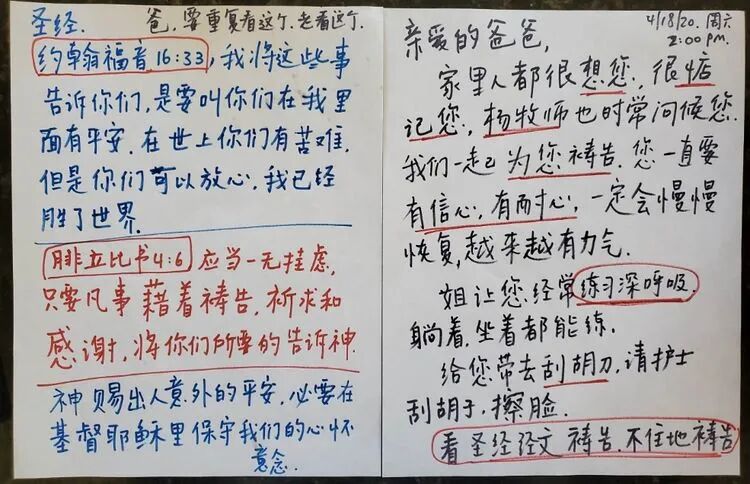 圣经.
爸, 要重复看这个. 老看这个.
约翰福音16:33, 我将这些事
告诉你们, 是要叫你们在我里
面有平安. 在世上你们有苦难.
但是你们可以放心, 我已经
胜了世界.
腓立比书4:6 应当一无挂虑,
只要凡事藉着祷告, 祈求和
感谢, 将你们所要的告诉神.
神赐出人意外的平安, 必要在
基督耶稣里保守我们的心怀
意念.
4/18/20. 周六
2:00 pm.
亲爱的爸爸,
家里人都很想您, 很惦
记您, 杨牧师也时常问候您.
我们一起为您祷告. 您一直要
有信心, 有耐心, 一定会慢慢
恢复, 越来越有力气.
姐让您经常练习深呼吸.
躺着, 坐着都能练.
给您带去刮胡刀, 请护士
刮胡子, 擦脸.
看圣经经文祷告. 不住地祷告